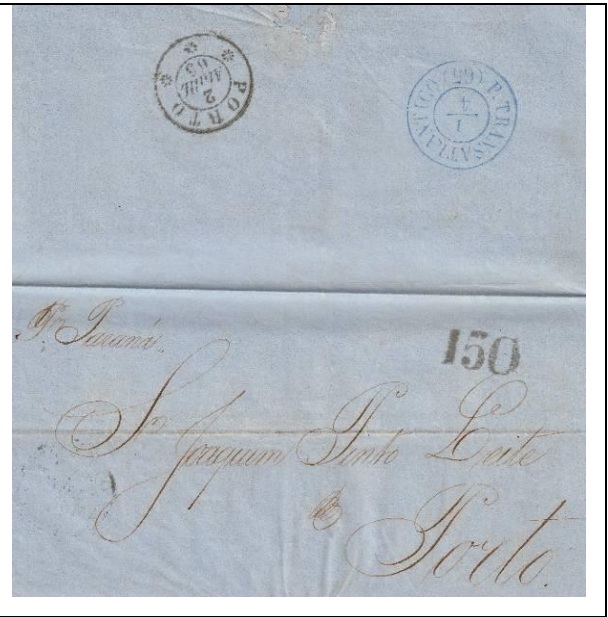 PORTO
2
ABRIL
65
P. TRANSATLANTICO (65)
1
4
Pr. Paraná
150
Snr Joaquim Pinto Leite
Porto.